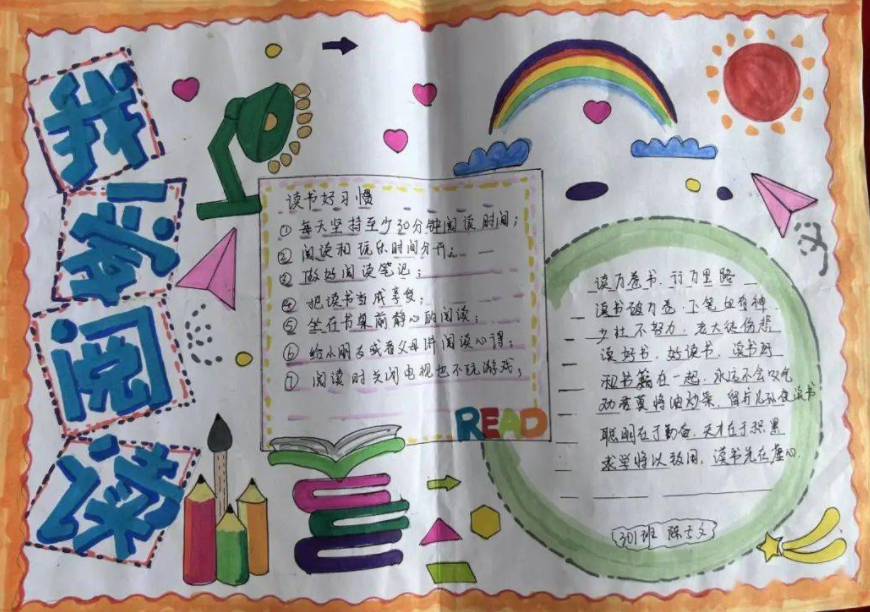 我爱阅读
读书好习惯
① 每天坚持至少30分钟阅读时间;
② 阅读和玩乐时间分开;
③ 做好阅读笔记;
④ 把读书当成享受;
⑤ 坐在书桌前静心的阅读;
⑥ 给小朋友或者父母讲阅读心得;
⑦ 阅读时关闭电视也不玩游戏;
READ
读万卷书,行万里路
读书破万卷,下笔如有神
少壮不努力,老大徒伤悲
读好书,好读书,读书好
和书籍在一起,永远不会叹气
劝君莫将油炒菜,留与儿孙夜读书
聪明在于勤奋,天才在于积累
求学将以致用,读书先在虚心
301班 陈文